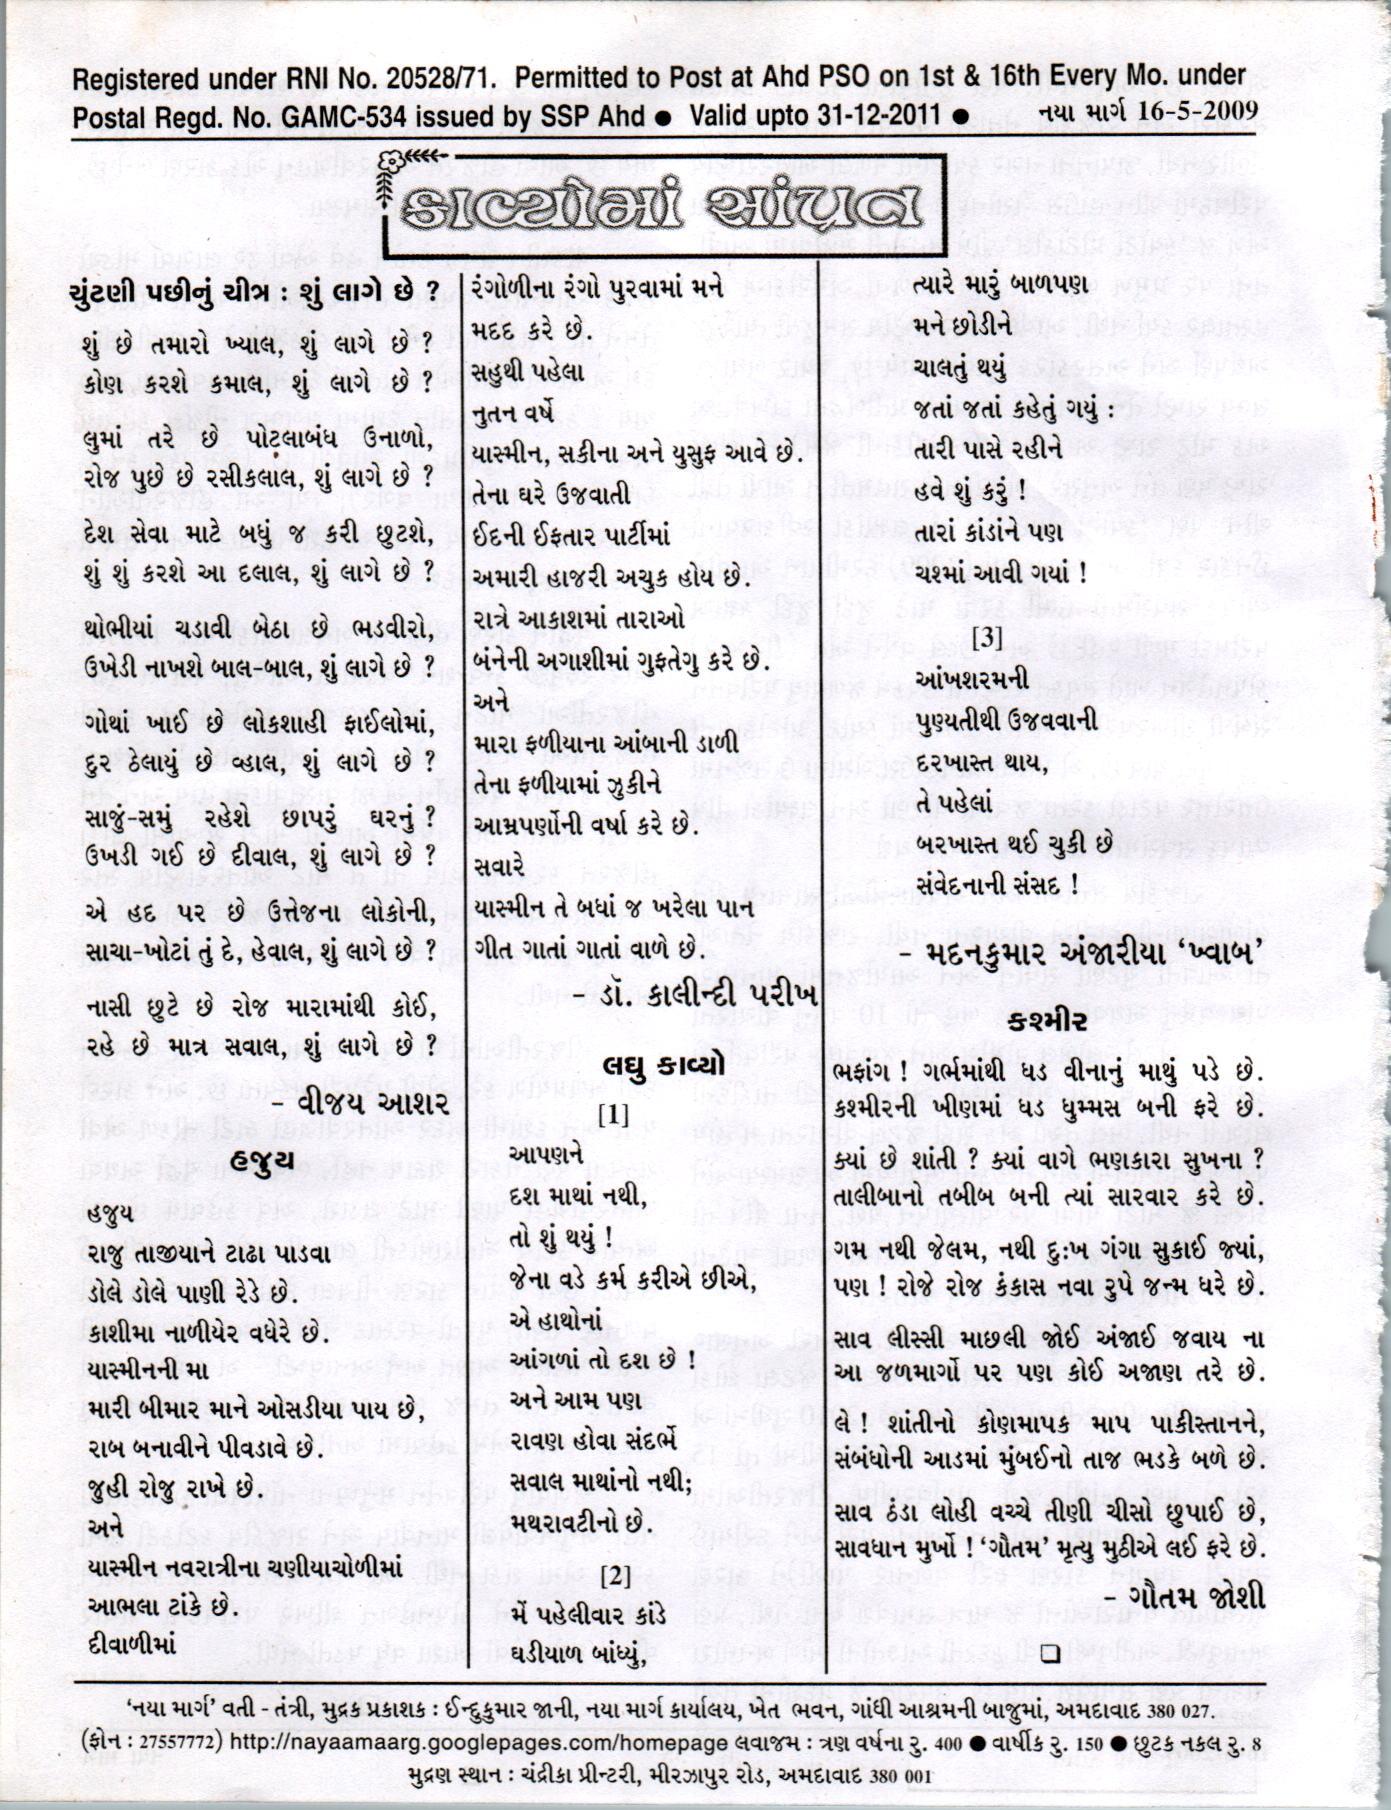 Registered under RNI No. 20528/71. Permitted to Post at Ahd PSO on 1st & 16th Every Mo. under
Postal Regd. No. GAMC-534 issued by SSP Ahd ● Valid upto 31-12-2011 ● નયા માર્ગ 16-5-2009
કાવ્યોમાં સાંપ્રત
ચુંટણી પછીનું ચીત્ર : શું લાગે છે ?
શું છે તમારો ખ્યાલ, શું લાગે છે ?
કોણ કરશે કમાલ, શું લાગે છે ?
લુમાં તરે છે પોટલાબંધ ઉનાળો,
રોજ પુછે છે રસીકલાલ, શું લાગે છે ?
દેશ સેવા માટે બધું જ કરી છુટશે,
શું શું કરશે આ દલાલ, શું લાગે છે ?
થોભીયાં ચડાવી બેઠા છે ભડવીરો,
ઉખેડી નાખશે બાલ-બાલ, શું લાગે છે ?
ગોથાં ખાઈ છે લોકશાહી ફાઈલોમાં,
દુર ઠેલાયું છે વ્હાલ, શું લાગે છે ?
સાજું-સમું રહેશે છાપરું ઘરનું ?
ઉખડી ગઈ છે દીવાલ, શું લાગે છે ?
એ હદ પર છે ઉત્તેજના લોકોની,
સાચા-ખોટાં તું દે, હેવાલ, શું લાગે છે ?
નાસી છુટે છે રોજ મારામાંથી કોઈ,
રહે છે માત્ર સવાલ, શું લાગે છે ?
- વીજય આશર
હજુય
હજુય
રાજુ તાજીયાને ટાઢા પાડવા
ડોલે ડોલે પાણી રેડે છે.
કાશીમા નાળીયેર વધેરે છે.
યાસ્મીનની મા
મારી બીમાર માને ઓસડીયા પાય છે,
રાબ બનાવીને પીવડાવે છે.
જુહી રોજુ રાખે છે.
અને
યાસ્મીન નવરાત્રીના ચણીયાચોળીમાં
આભલા ટાંકે છે.
દીવાળીમાં
રંગોળીના રંગો પુરવામાં મને
મદદ કરે છે.
સહુથી પહેલા
નુતન વર્ષે
યાસ્મીન, સકીના અને યુસુફ આવે છે.
તેના ઘરે ઉજવાતી
ઈદની ઈફતાર પાર્ટીમાં
અમારી હાજરી અચુક હોય છે.
રાત્રે આકાશમાં તારાઓ
બંનેની અગાશીમાં ગુફતેગુ કરે છે.
અને
મારા ફળીયાના આંબાની ડાળી
તેના ફળીયામાં ઝુકીને
આમ્રપર્ણોની વર્ષા કરે છે.
સવારે
યાસ્મીન તે બધાં જ ખરેલા પાન
ગીત ગાતાં ગાતાં વાળે છે.
- ડૉ. કાલીન્દી પરીખ
લઘુ કાવ્યો
[1]
આપણને
દશ માથાં નથી,
તો શું થયું !
જેના વડે કર્મ કરીએ છીએ,
એ હાથોનાં
આંગળાં તો દશ છે !
અને આમ પણ
રાવણ હોવા સંદર્ભે
સવાલ માથાંનો નથી;
મથરાવટીનો છે.
[2]
મેં પહેલીવાર કાંડે
ઘડીયાળ બાંધ્યું,
ત્યારે મારું બાળપણ
મને છોડીને
ચાલતું થયું
જતાં જતાં કહેતું ગયું :
તારી પાસે રહીને
હવે શું કરું !
તારા કાંડાંને પણ
ચશ્માં આવી ગયાં !
[3]
આંખશરમની
પુણ્યતીથી ઉજવવાની
દરખાસ્ત થાય,
તે પહેલાં
બરખાસ્ત થઈ ચુકી છે
સંવેદનાની સંસદ !
- મદનકુમાર અંજારીયા ‘ખ્વાબ’
કશ્મીર
ભફાંગ ! ગર્ભમાંથી ધડ વીનાનું માથું પડે છે.
કશ્મીરની ખીણમાં ધડ ધુમ્મસ બની ફરે છે.
ક્યાં છે શાંતી ? ક્યાં વાગે ભણકારા સુખના ?
તાલીબાનો તબીબ બની ત્યાં સારવાર કરે છે.
ગમ નથી જેલમ, નથી દુ:ખ ગંગા સુકાઈ જ્યાં,
પણ ! રોજે રોજ કંકાસ નવા રુપે જન્મ ધરે છે.
સાવ લીસ્સી માછલી જોઈ અંજાઈ જવાય ના
આ જળમાર્ગો પર પણ કોઈ અજાણ તરે છે.
લે ! શાંતીનો કોણમાપક માપ પાકીસ્તાનને,
સંબંધોની આડમા મુંબઈનો તાજ ભડકે બળે છે.
સાવ ઠંડા લોહી વચ્ચે તીણી ચીસો છુપાઈ છે,
સાવધાન મુખો ! ‘ગૌતમ’ મૃત્યુ મુઠીએ લઈ ફરે છે.
- ગૌતમ જોશી
‘નયા માર્ગ’ વતી - તંત્રી, મુદ્રક પ્રકાશક : ઈન્દુકુમાર જાની, નયા માર્ગ કાર્યાલય, ખેત ભવન, ગાંધી આશ્રમની બાજુમાં, અમદાવાદ 380 027.
(ફોન : 27557772) http://nayaamaarg.googlepages.com/homepage લવાજમ : ત્રણ વર્ષના રુ. 400 ● વાર્ષીક રુ. 150 ● છુટક નકલ રુ. 8
મુદ્રણ સ્થાન : ચંદ્રીકા પ્રીન્ટરી, મીરઝાપુર રોડ, અમદાવાદ 380 001